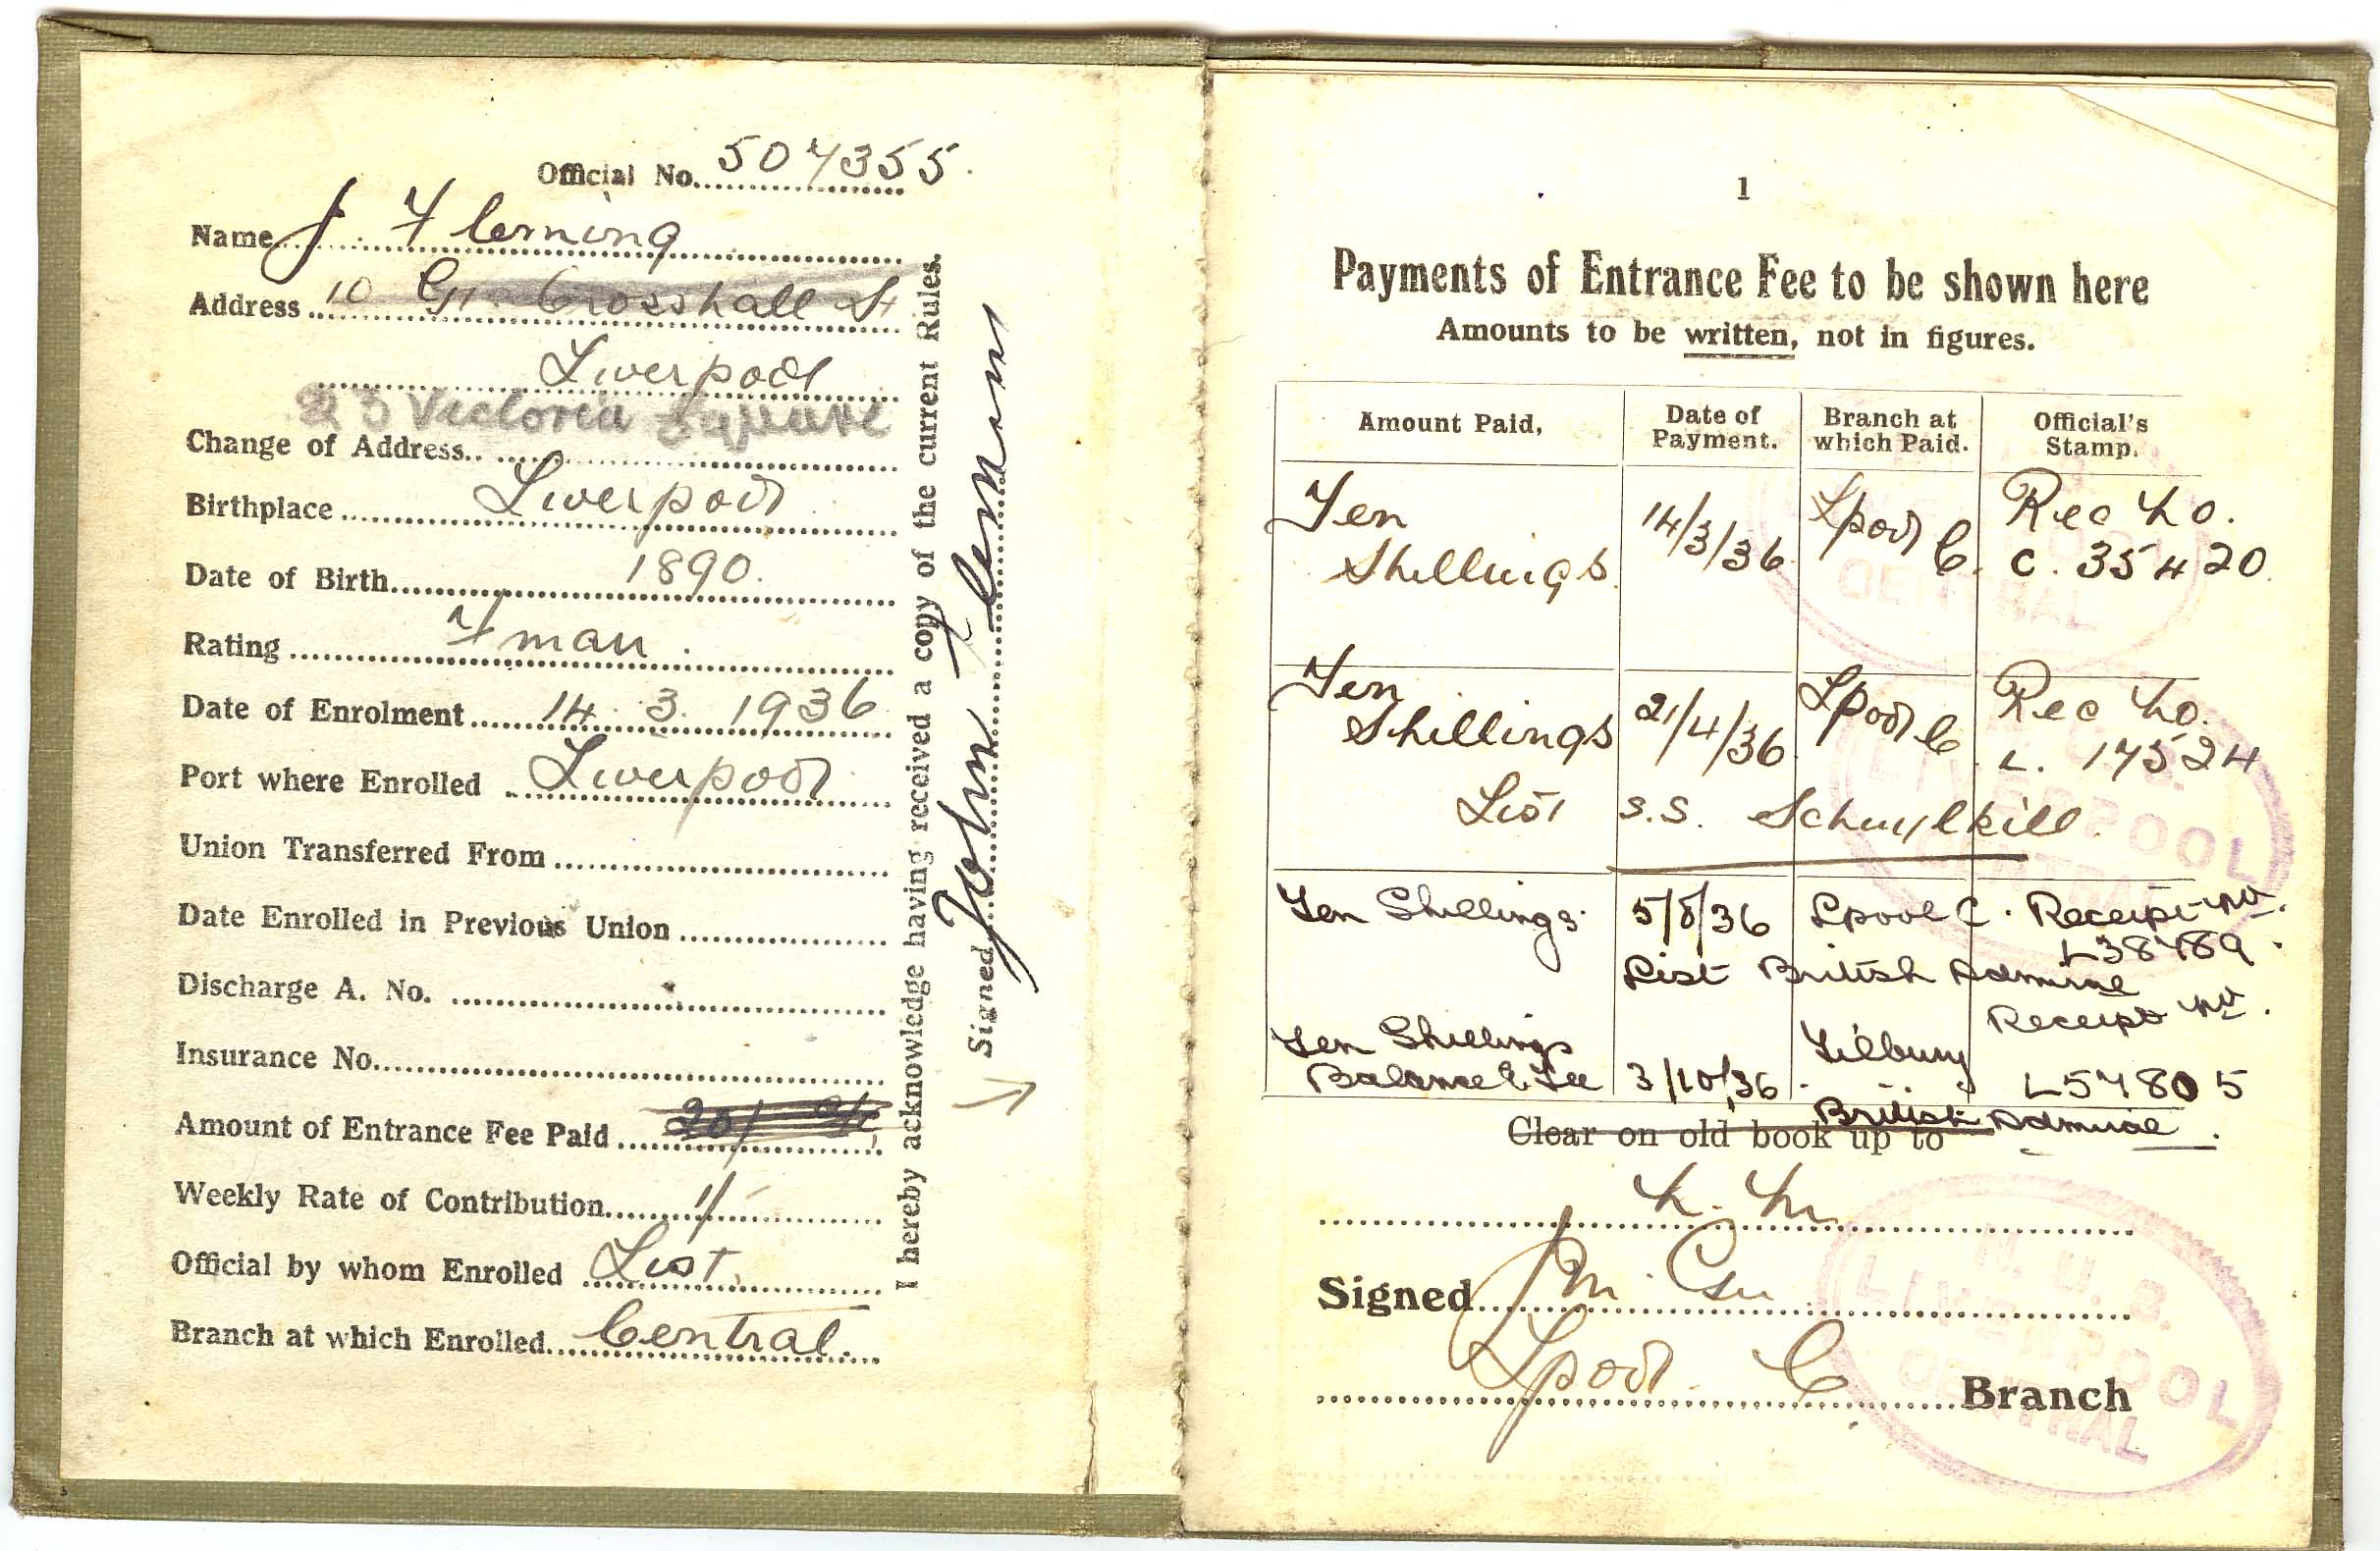 Official No. 507355.
Name J Fleming
Address 10 Gt. Crosshall St
Liverpool
23 Victoria Square
Change of Address
Birthplace Liverpool
Date of Birth 1890.
Rating Fman.
Date of Enrolment 14. 3. 1936
Port where Enrolled Liverpool
Union Transferred From
Date Enrolled in Previous Union
Discharge A. No.
Insurance No.
Amount of Entrance Fee Paid 20/
Weekly Rate of Contribution 1/-
Official by whom Enrolled List.
Branch at which Enrolled Central.
I hereby acknowledge having received a copy of the current Rules.
Signed John Fleming
1
Payments of Entrance Fee to be shown here
Amounts to be written, not in figures.
Amount Paid, Date of Payment. Branch at which Paid. Official's Stamp.
Ten Shillings 14/3/36 Lpool C. Rec No. C. 35420.
Ten Shillings 21/4/36 Lpool C Rec No. L. 17524
List S.S. Schuylkill.
Ten Shillings 5/8/36 Lpool C. Receipt No. L38789.
List British Admiral
Ten Shillings Balance E. Fee 3/10/36 Tilbury Receipt No. L57805
British Admiral.
Clear on old book up to
N. M.
Signed
Lpool C Branch
N.U.S.
LIVERPOOL
CENTRAL